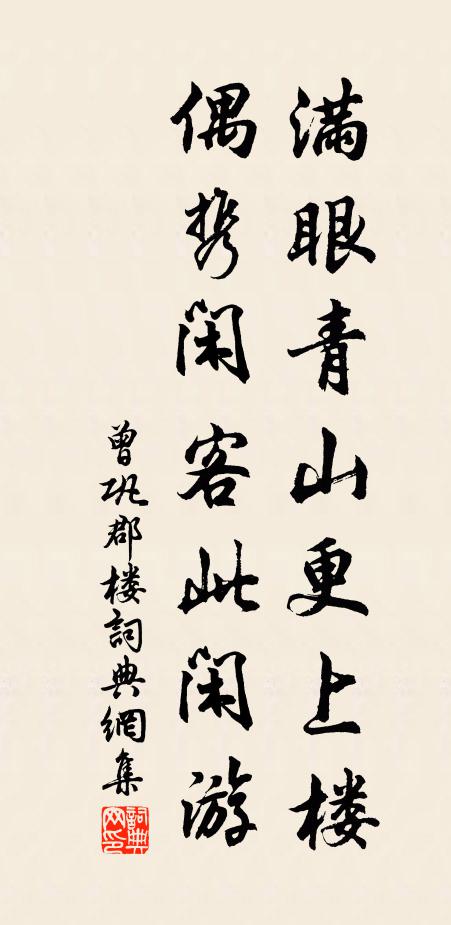 满眼青山更上楼
偶携闲客此闲游
曾巩郡楼词典網集
詞典网印